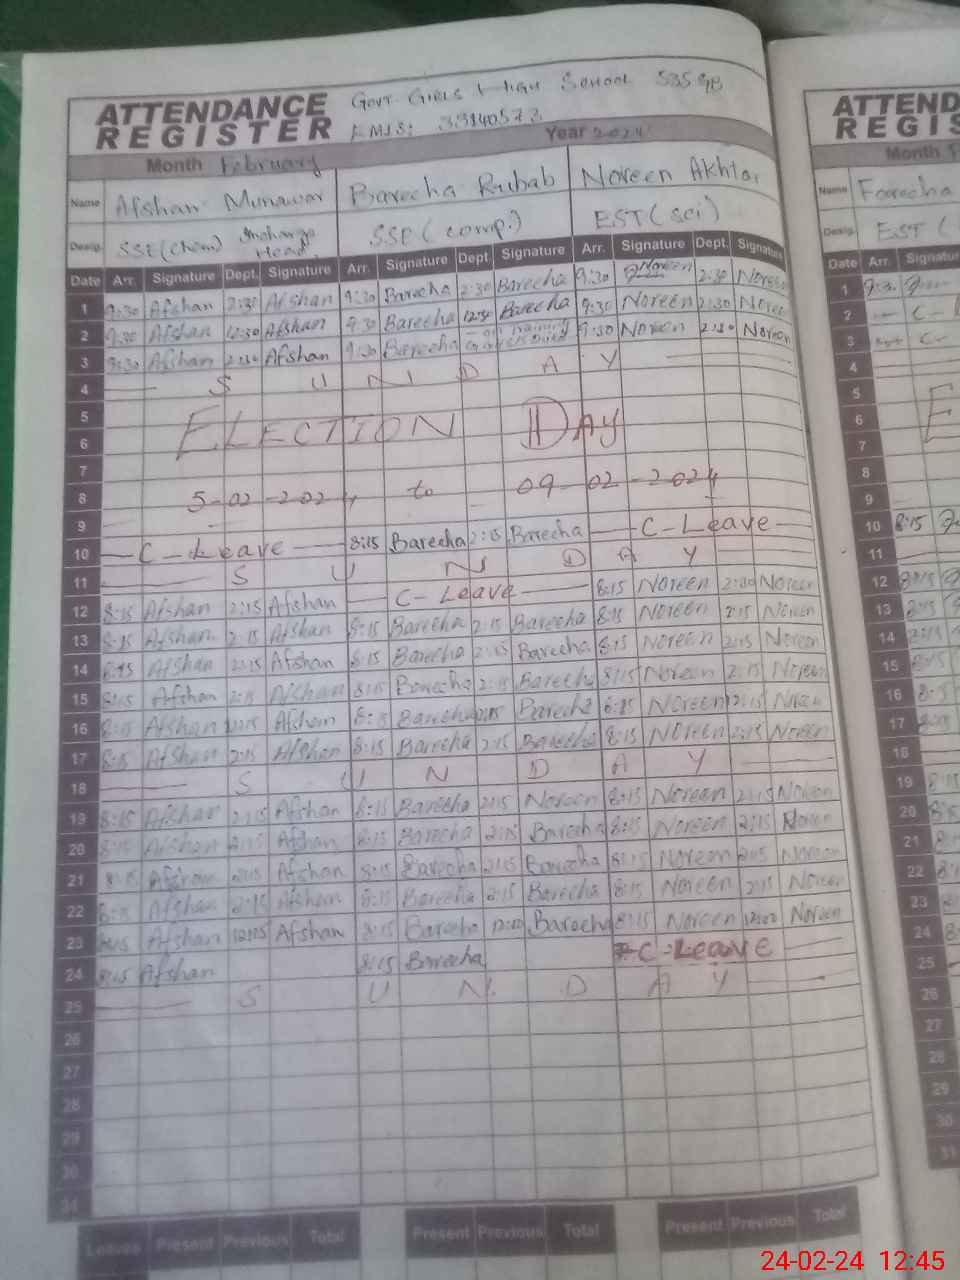 ATTENDANCE REGISTER Govt. Girls High School 535 GB
EMIS: 33140573
Month February Year 2024
Name Afshan Munawar Bareeha Rubab Noreen Akhtar
Desig. SSE(Chem) Incharge Head SSE(comp.) EST(sci)
Date Arr. Signature Dept. Signature Arr. Signature Dept. Signature Arr. Signature Dept. Signature
1 9:30 Afshan 2:30 Afshan 9:30 Bareeha 2:30 Bareeha 9:30 Noreen 2:30 Noreen
2 9:30 Afshan 12:30 Afshan 9:30 Bareeha 12:30 Bareeha 9:30 Noreen 2:30 Noreen
3 9:30 Afshan 2:30 Afshan 9:30 Bareeha on Training 9:30 Noreen 2:30 Noreen
4 S U N D A Y
5
6 ELECTION DAY
7
8 5-02-2024 to 09-02-2024
9
10 C-Leave 8:15 Bareeha 2:15 Bareeha C-Leave
11 S U N D A Y
12 8:15 Afshan 2:15 Afshan C-Leave 8:15 Noreen 2:00 Noreen
13 8:15 Afshan 2:15 Afshan 8:15 Bareeha 2:15 Bareeha 8:15 Noreen 2:15 Noreen
14 8:15 Afshan 2:15 Afshan 8:15 Bareeha 2:15 Bareeha 8:15 Noreen 2:15 Noreen
15 8:15 Afshan 2:15 Afshan 8:15 Bareeha 2:15 Bareeha 8:15 Noreen 2:15 Noreen
16 8:15 Afshan 12:15 Afshan 8:15 Bareeha Bareeha 8:15 Noreen 12:15 Noreen
17 8:15 Afshan 2:15 Afshan 8:15 Bareeha 2:15 Bareeha 8:15 Noreen 2:15 Noreen
18 S U N D A Y
19 8:15 Afshan 2:15 Afshan 8:15 Bareeha 2:15 Noreen 8:15 Noreen 2:15 Noreen
20 8:15 Afshan 2:15 Afshan 8:15 Bareeha 2:15 Bareeha 8:15 Noreen 2:15 Noreen
21 8:15 Afshan 2:15 Afshan 8:15 Bareeha 2:15 Bareeha 8:15 Noreen 2:15 Noreen
22 8:15 Afshan 2:15 Afshan 8:15 Bareeha 2:15 Bareeha 8:15 Noreen 2:15 Noreen
23 8:15 Afshan 12:05 Afshan 8:15 Bareeha 12:00 Bareeha 8:15 Noreen 12:00 Noreen
24 8:15 Afshan 8:15 Bareeha C-Leave
25 S U N D A Y
26
27
28
29
30
31
Leaves Present Previous Total Present Previous Total Present Previous Total
ATTEND
REGIS
Month
Name Fareeha
Desig. EST (
Date Arr. Signatur
1 9:30
2 C-
3 C-
4
5
6 E
7
8
9
10 8:15
11
12 8:15
13
14
15 8:15
16
17 8:15
18
19 8:15
20
21
22
23
24
25
26
27
28
29
30
31
24-02-24 12:45